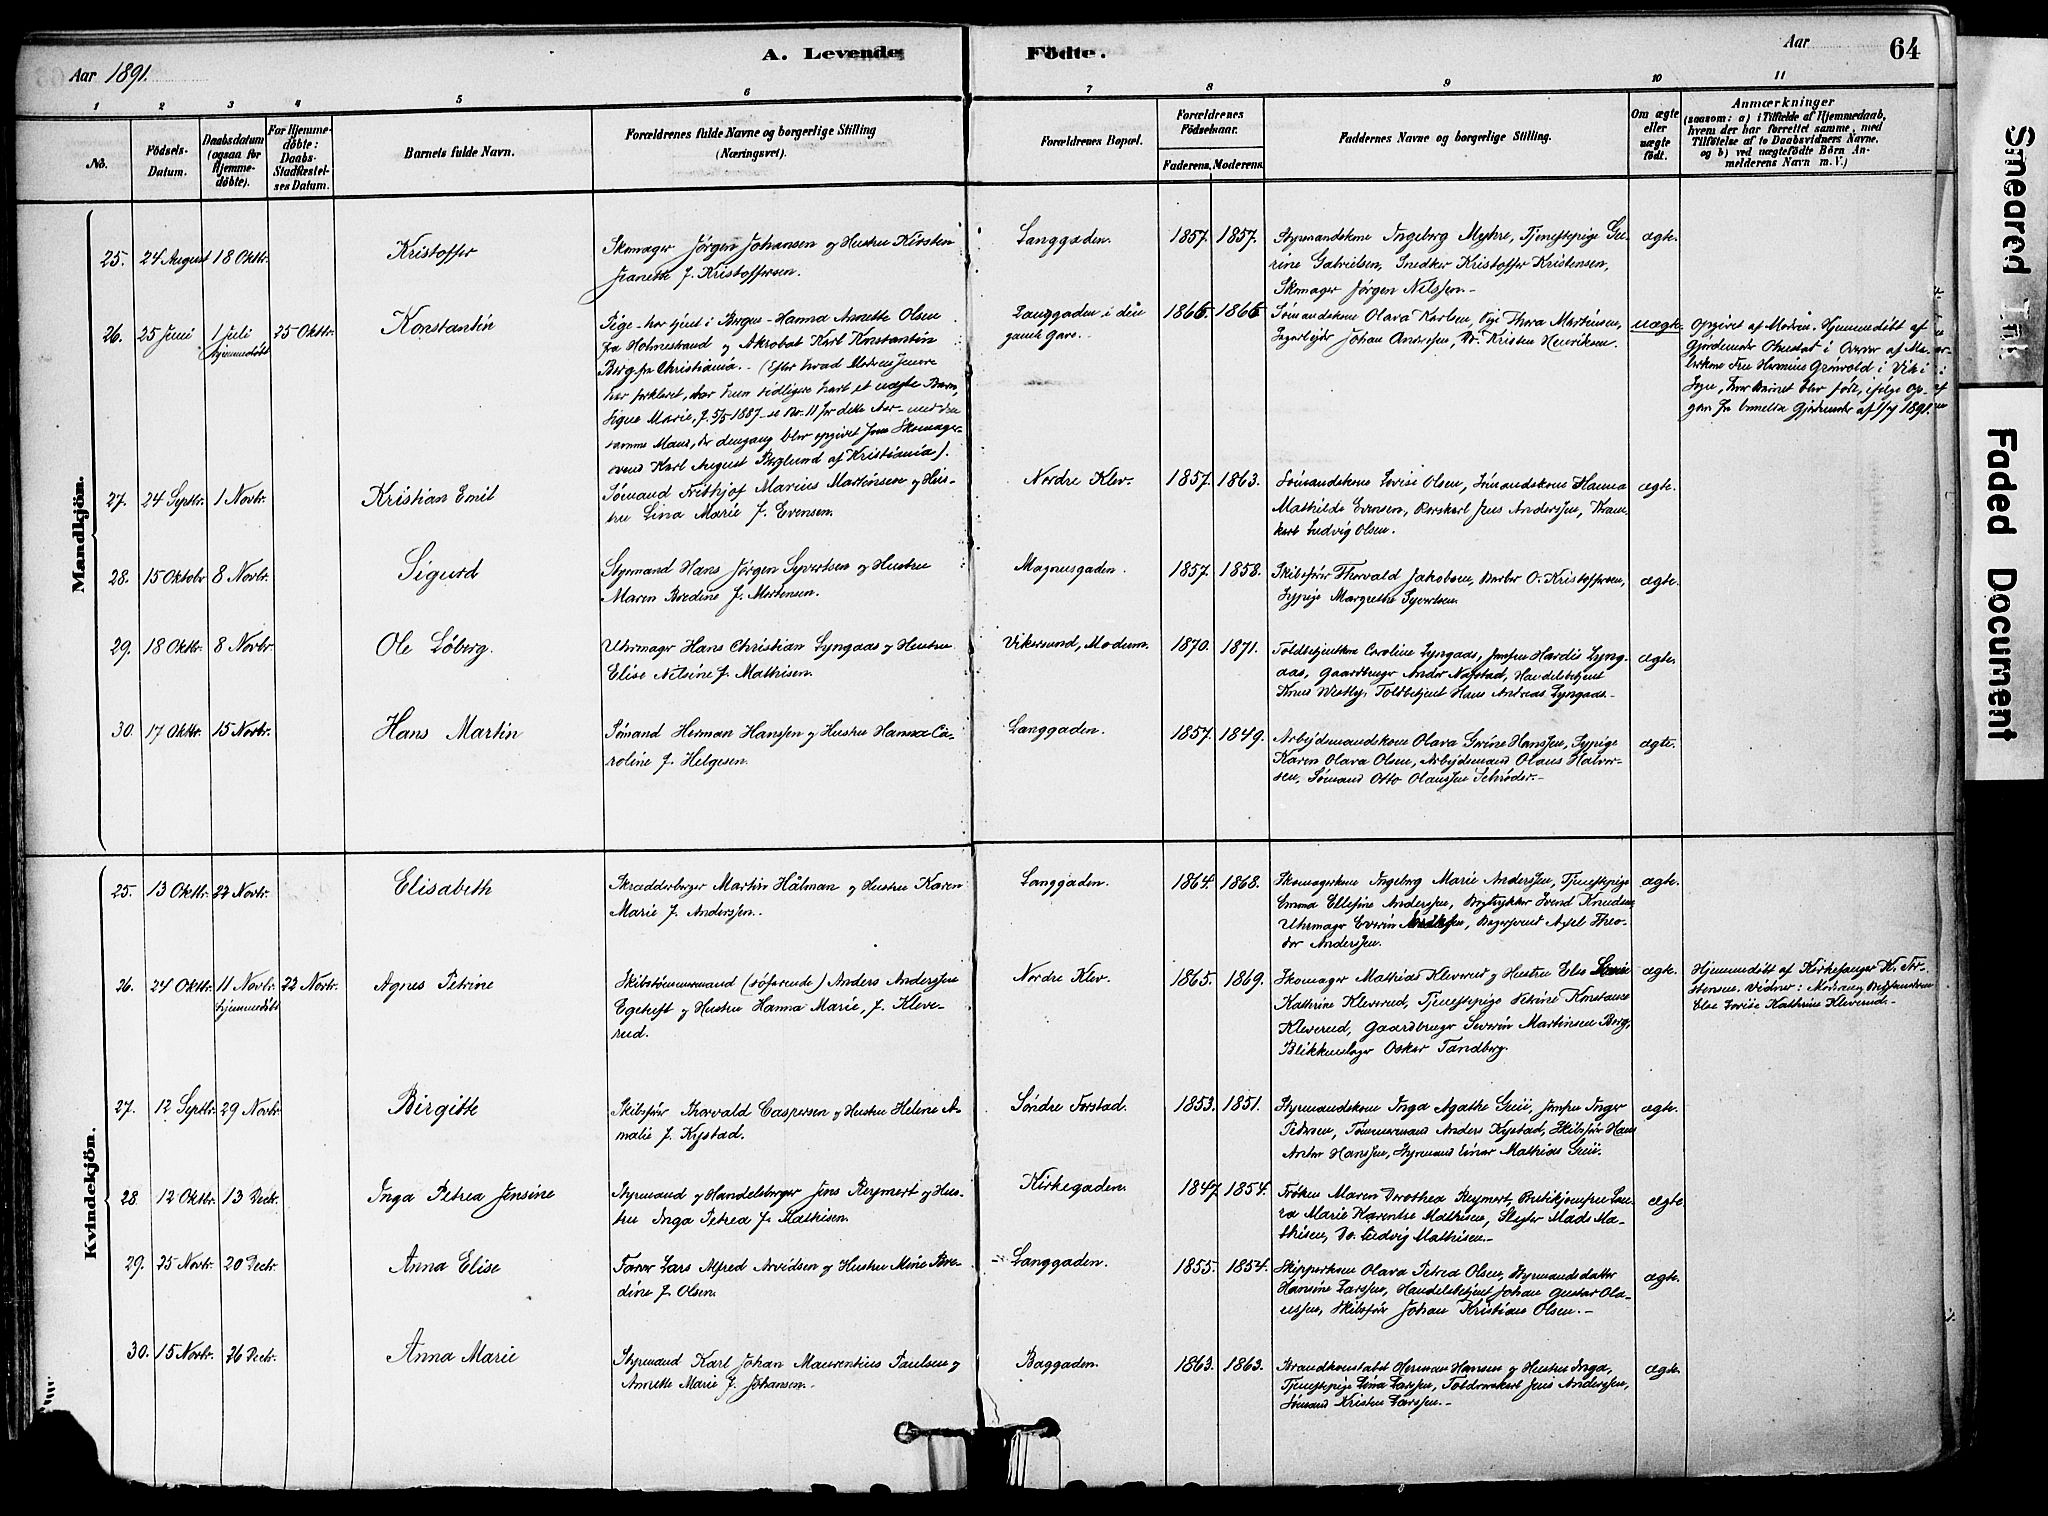 Aar 1891.
A. Levende Fødte.
Aar
64
1 2 3 4 5 6 7 8 9 10 11
No.
Födsels-Datum.
Daabsdatum (ogsaa for Hjemme-döbte).
For Hjemme-döbte: Daabs-Stadfæstel-ses Datum.
Barnets fulde Navn.
Forældrenes fulde Navne og borgerlige Stilling (Næringsvei).
Forældrenes Bopæl.
Forældrenes Födselsaar.
Faderens. Moderens.
Faddernes Navne og borgerlige Stilling.
Om ægte eller uægte født.
Anmærkninger
(saasom: a) i Tilfælde af Hjemmedaab, hvem der har forrettet samme, med Tilföielse af to Daabsvidners Navne, og b) ved uægtefödte Börn An-melderens Navn m. V.)
Mandkjön.
25. 24 August 18 Oktbr. Kristoffer
Skomager Jørgen Johansen og Hustru Kirsten
Jeanette f. Kristoffersen.
Langgaden. 1857. 1857.
Styrmandskone Ingeborg Myhre, Tjenestepige Gu-
rine Gabrielsen, Snedker Kristoffer Kristensen,
Skomager Jørgen Nilssen.
ægte.
26. 25 Juni 1 Juli hjemmedøbt 25 Oktbr. Konstantin
Pige - har tjent i Bergen - Hanna Annette Olsen
fra Holmestrand og Akrobat Karl Konstantin
Berg, fra Christiania. - (Efter hvad Moderen senere
har forklaret, har hun tidligere havt et uægte Barn,
Signe Marie, f. 5/5 1887 - se No. 11 for dette Aar - med den
samme Mand, der dengang blev opgivet som Skomager-
svend Karl August Berglund af Kristiania).
Langgaden i den
gamle Gard.
1866. 1866.
Sømandskone Olava Karlsen, Pige Thora Martinsen,
Johan Anderssen, Do. Kristen Henriksen.
uægte.
Opgivet af Moderen. Hjemmedøbt af
Gjordemoder i Overvær af Ma-
lerkone Fru Hermine Grønvold i Vik i
Sogn, hvor Barnet blev født, ifølge Op-
gave fra bemeldte Gjordemoder af 1/7 1891.
27. 24 Septbr. 1 Novbr. Kristian Emil
Sømand Frithjof Marius Martinsen og Hus-
tru Lina Marie f. Evensen.
Nordre Klev. 1857. 1863.
Sømandskone Lovise Olsen, Sømandskone Hanna
Mathilde Evensen, Jens Anderssen,
Ludvig Olsen.
ægte.
28. 15 Oktobr 8 Novbr. Sigurd
Styrmand Hans Jørgen Syvertsen og Hustru
Maren Bredine f. Mortensen.
Magnusgaden. 1857. 1858.
Skibsfører Thorvald Jakobsen, Barber O. Kristoffersen,
Sypige Margrethe Syvertsen.
ægte.
29. 18 Oktbr. 8 Novbr. Ole Løberg.
Uhrmager Hans Christian Lyngaas og Hustru
Elise Nilsine f. Mathisen.
Vikersund, Modum. 1870. 1871.
Toldbetjentkone Caroline Lyngaas, Jomfru Hardis Lyng-
aas, Gaardbruger Anders Nafstad, Handelsbetjent
Knut Westby, Toldbetjent Hans Andreas Lyngaas.
ægte.
30. 17 Oktbr. 15 Novbr. Hans Martin
Sømand Herman Hanssen og Hustru Hanna Ca-
roline f. Helgesen.
Langgaden. 1857. 1849.
Arbejdsmandskone Olava Grine Hanssen, Sypige
Karen Olava Olsen, Arbejdsmand Olaus Halvor-
sen, Sømand Otto Olaussen Schrøder.
ægte.
Kvindekjön.
25. 13 Oktbr. 22 Novbr. Elisabeth
Skrædderborger Martin Hålman og Hustru Karen
Marie f. Anderssen.
Langgaden. 1864. 1868.
Skomagerkone Ingeborg Marie Anderssen, Tjenestepige
Emma Ellefine Anderssen, Bogtrykker Svend Knudsen,
Uhrmager Everin, Bagersvend Axel Theo-
dor Anderssen.
ægte.
26. 24 Oktbr. 11 Novbr. hjemmedøbt 22 Novbr. Agnes Petrine
Skibstømmermand (søfarende) Anders Anderssen
Egetuft og Hustru Hanna Marie, f. Kleve-
rud.
Nordre Klev. 1865. 1869.
Skomager Mathias Kleverud og Hustru Else Lovise
Kathrine Kleverud, Tjenestepige Petrine Konstanse
Kleverud, Gaardbruger Severin Martinsen Berg,
Blikkenslager Oskar Tandberg.
ægte.
Hjemmedøbt af Kirkesanger Kr. Tor-
stensen. Vidner: Moder og Bedstemoder
Else Lovise Kathrine Kleverud.
27. 12 Septbr. 29 Novbr. Birgitte
Skibsfører Thorvald Caspersen og Hustru Helene A-
malie f. Kystad.
Søndre Forstad. 1853. 1851.
Styrmandskone Inga Agathe, Jomfru Inger
Pedersen, Tømmermand Anders Kystad, Skibsfører Hans
Anton Hanssen, Styrmand Einar Mathias.
ægte.
28. 12 Oktbr. 13 Decbr. Inga Petrea Jensine
Styrmand og Handelsborger Jens Reymert og Hus-
tru Inga Petrea f. Mathisen.
Kirkegaden. 1847. 1854.
Frøken Maren Dorothea Reymert, Butikjomfru Lau-
ra Marie Karentse Mathisen, Slagter Mads Ma-
thisen, Do. Ludvig Mathisen.
ægte.
29. 25 Novbr. 20 Decbr. Anna Elise
Farver Lars Alfred Arvidsen og Hustru Mine Bre-
dine f. Olsen.
Langgaden. 1855. 1854.
Skipperkone Olava Petrea Olsen, Styrmandsdatter
Hansine Larssen, Handelsbetjent Johan Gustav Ola-
ussen, Skibsfører Johan Kristian Olsen.
ægte.
30. 15 Novbr. 26 Decbr. Anna Marie
Styrmand Karl Johan Maurentius Paulsen og
Annette Marie f. Johansen.
Baggaden. 1863. 1863.
Brandkonstabel Herman Hansen og Hustru Inga,
Tjenestepige Lina Larssen, Jens Anderssen,
Sømand Kristen Larssen.
ægte.
Smeared Ink
Faded Document